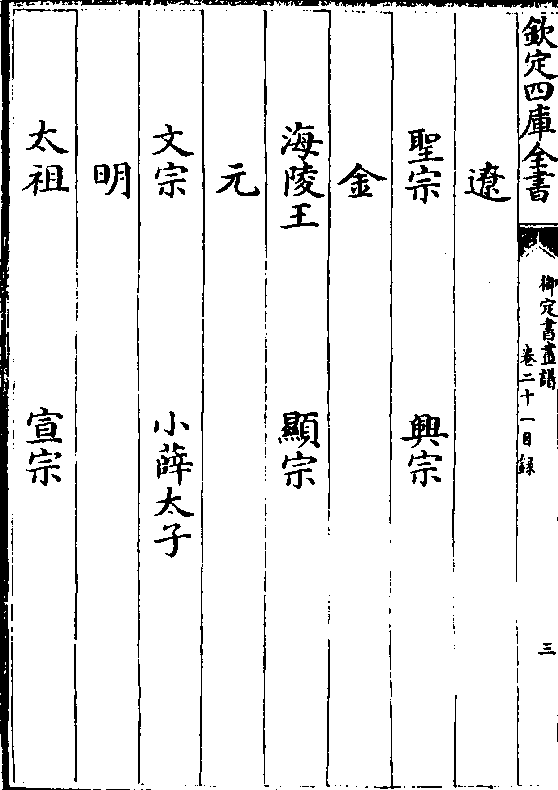 欽定四庫全書
御定書畫譜
卷二十一目録
三
遼
聖宗　興宗
金
海陵王　顯宗
元
文宗　小薛太子
明
太祖　宣宗